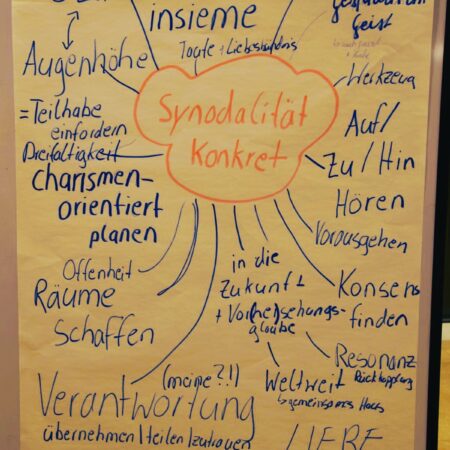 insieme
Taufe + Liebesbündnis
Geist
Augenhöhe
Werkzeug
Synodalität
Konkret
= Teilhabe
einfordern
Dreifaltigkeit
charismen-
orientiert
planen
Auf/
Zu/Hin
Hören
Vorausgehen
Offenheit
Räume
schaffen
in die
Zukunft
+ Vorsehungs-
glaube
Konsens
finden
Resonanz
Rückkopplung
Weltweit
gemeinsames Haus
(meine?!)
Verantwortung
übernehmen/teilen/zutrauen
LIEBE